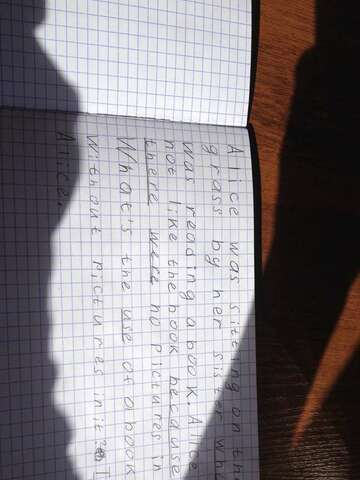 Alice was sitting on the
grass by her sister who
was reading a book. Alice
not like the book because
there were no pictures in
What's the use of a book
without pictures in it?
Alice.